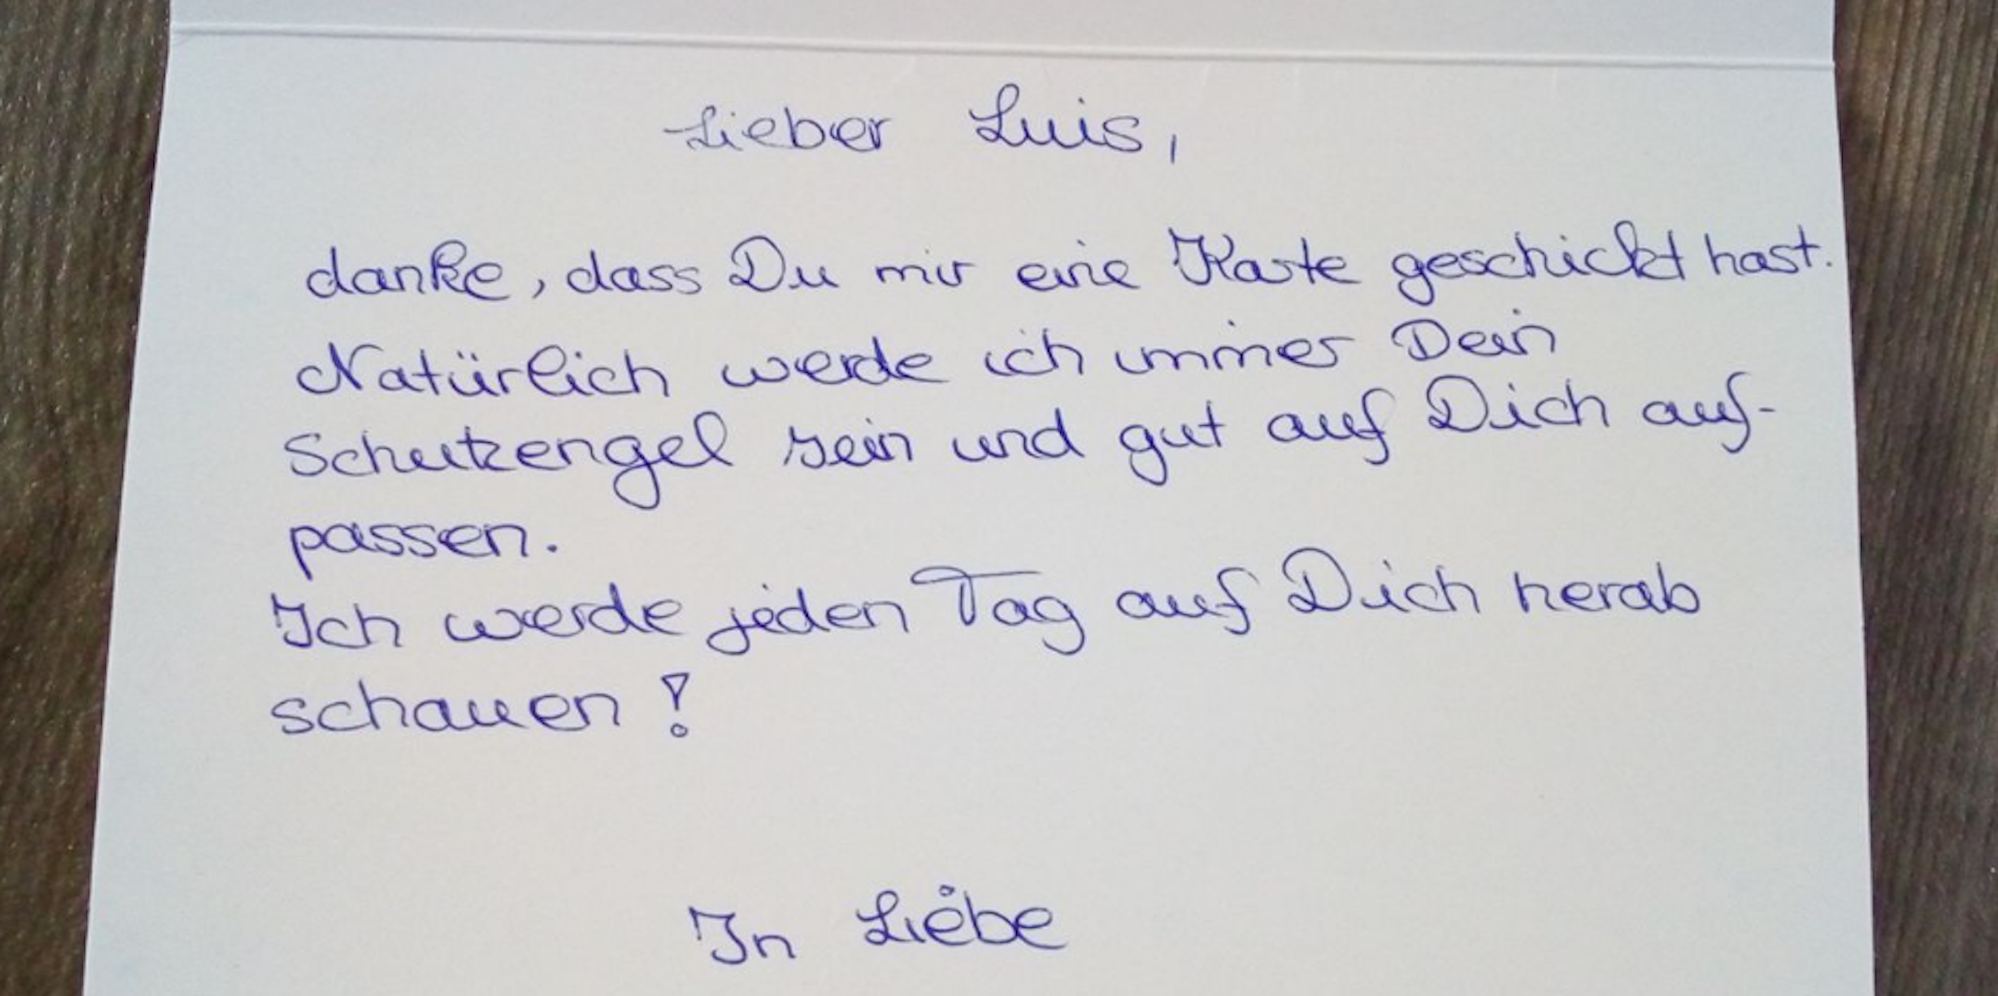 Lieber Luis,
danke, dass Du mir eine Karte geschickt hast.
Natürlich werde ich immer Dein
Schutzengel sein und gut auf Dich auf-
passen.
Ich werde jeden Tag auf Dich herab
schauen!
In Liebe